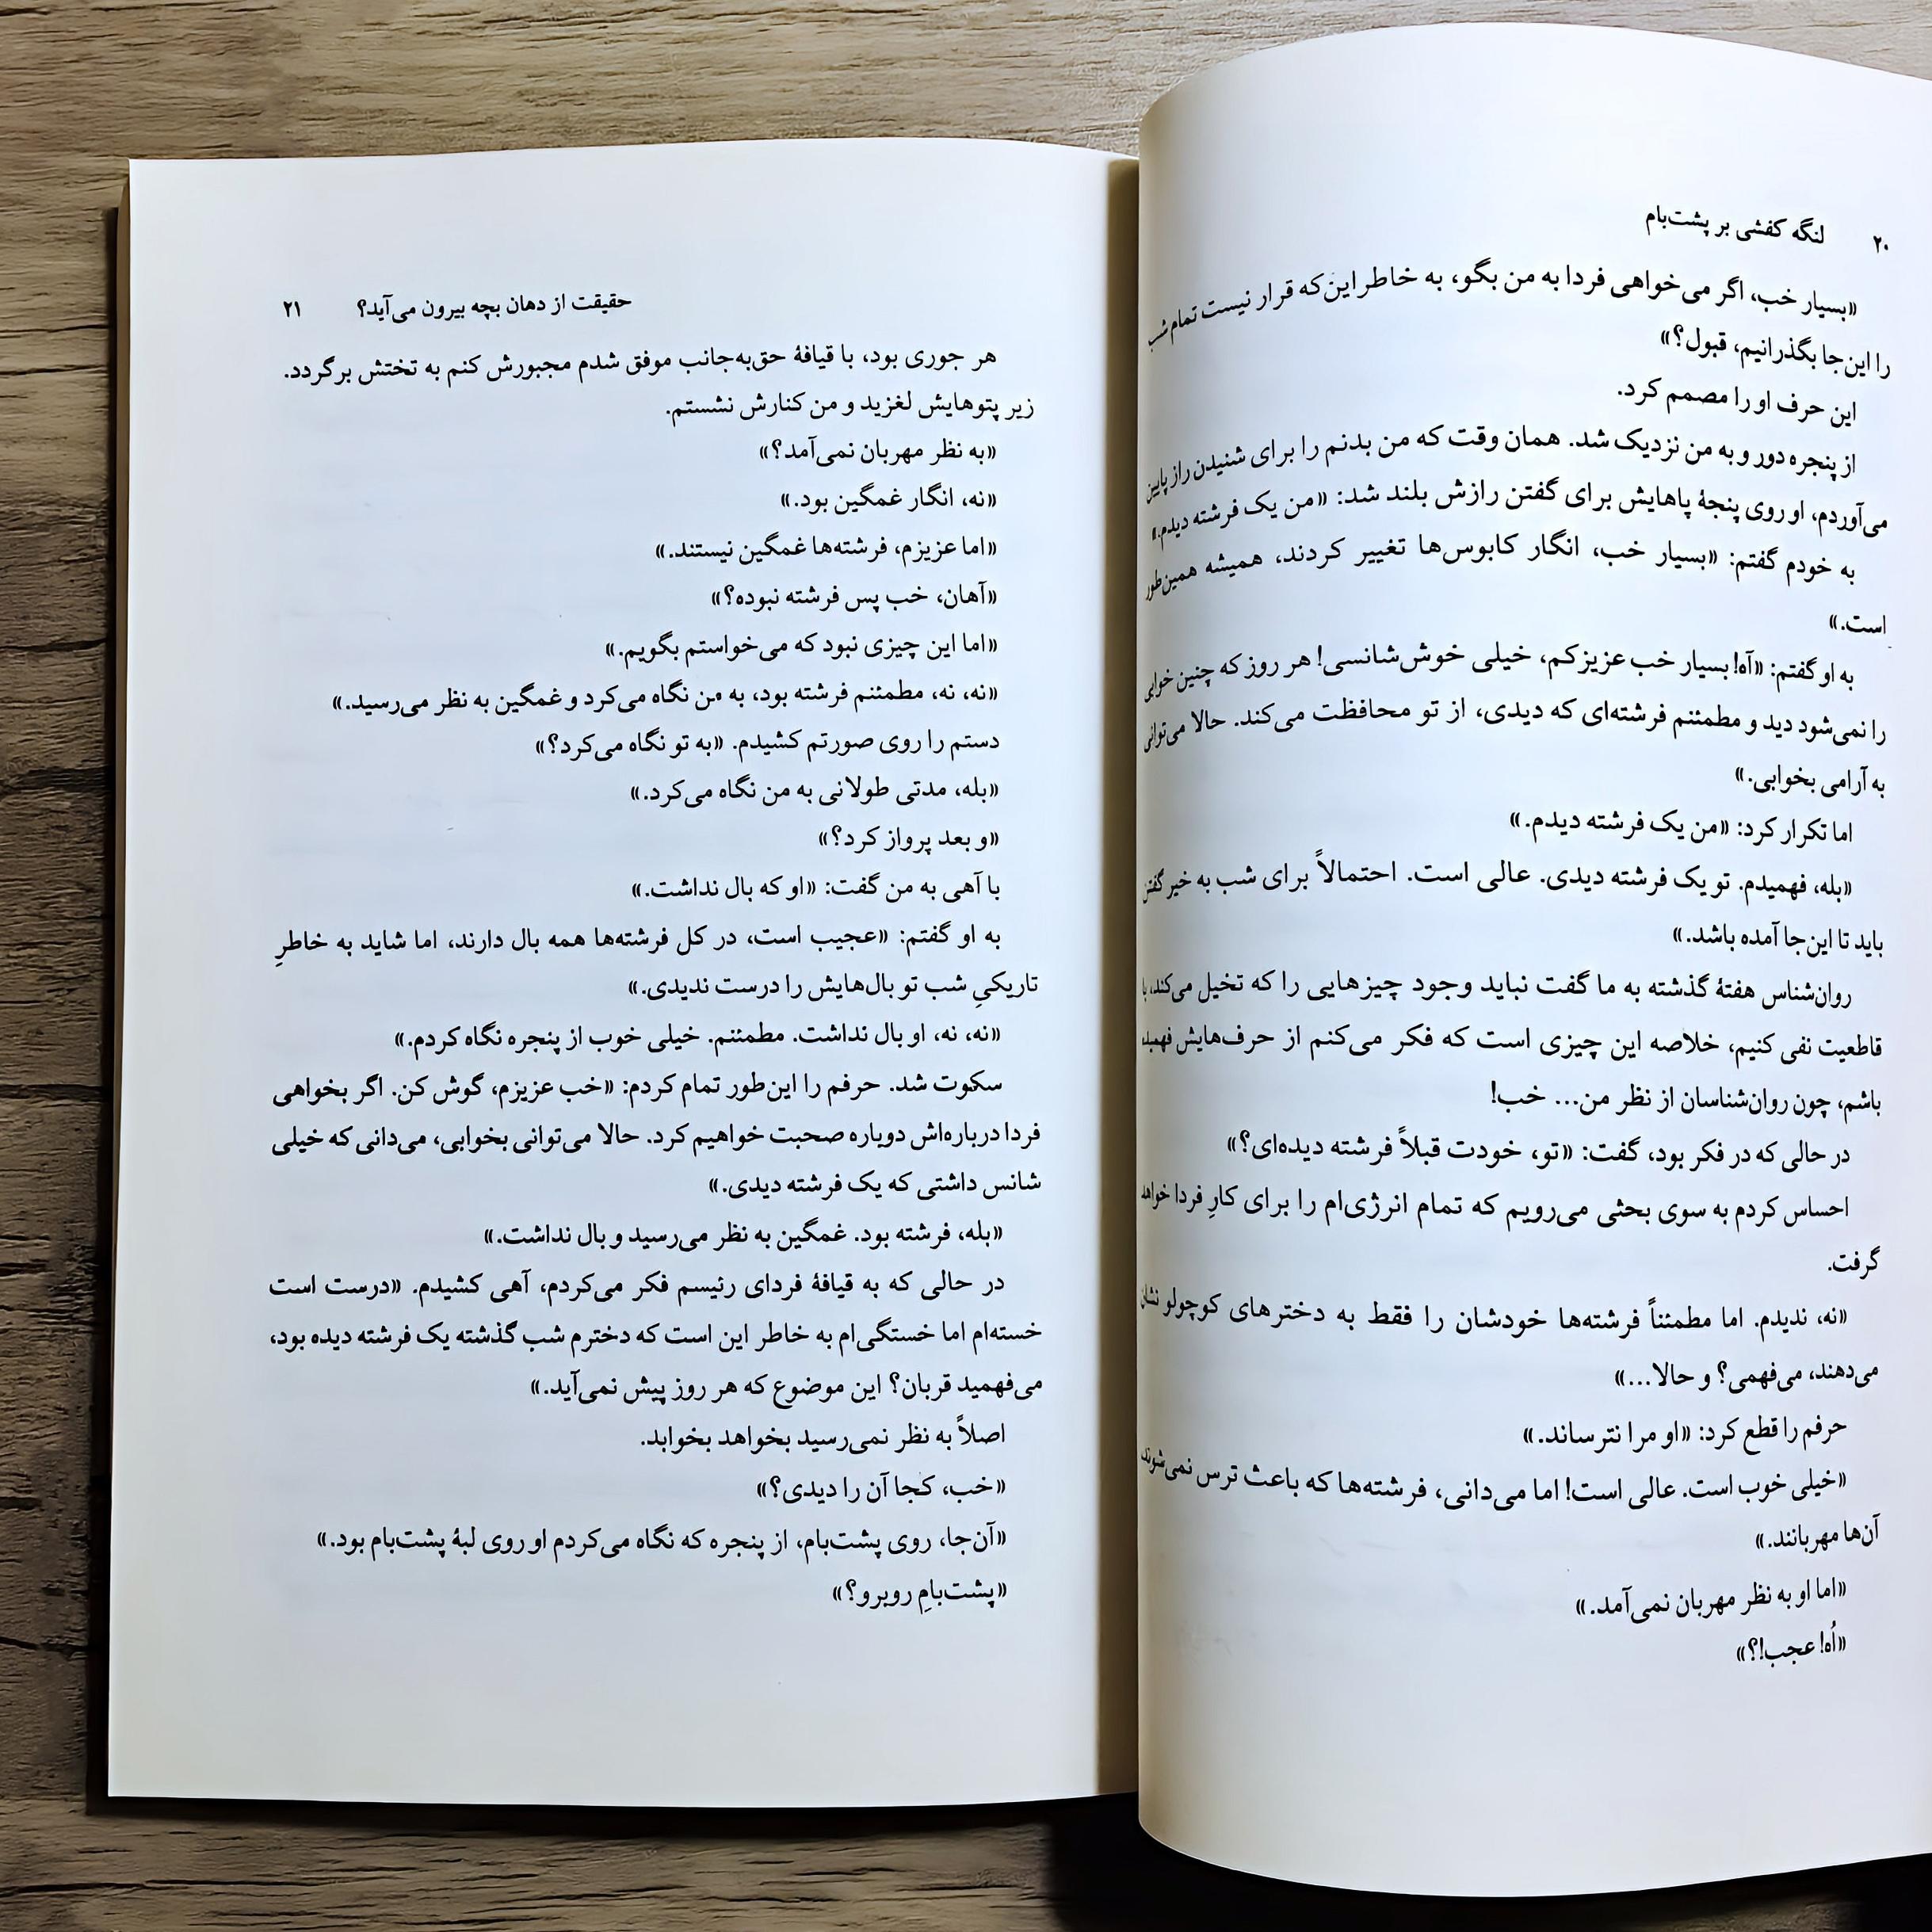 ۲۰ لنگه کفشی بر پشت‌بام
«بسیار خب، اگر می‌خواهی فردا به من بگو، به خاطر این‌که قرار نیست تمام شب
را این‌جا بگذرانیم، قبول؟»
این حرف او را مصمم کرد.
از پنجره دور و به من نزدیک شد. همان وقت که من بدنم را برای شنیدن راز پایین
می‌آوردم، او روی پنجهٔ پاهایش برای گفتن رازش بلند شد: «من یک فرشته دیدم.»
به خودم گفتم: «بسیار خب، انگار کابوس‌ها تغییر کردند، همیشه همین‌طور
است.»
به او گفتم: «آه! بسیار خب عزیزکم، خیلی خوش‌شانسی! هر روز که چنین خوابی
را نمی‌شود دید و مطمئنم فرشته‌ای که دیدی، از تو محافظت می‌کند. حالا می‌توانی
به آرامی بخوابی.»
اما تکرار کرد: «من یک فرشته دیدم.»
«بله، فهمیدم. تو یک فرشته دیدی. عالی است. احتمالاً برای شب به خیر گفتن
باید تا این‌جا آمده باشد.»
روان‌شناس هفتهٔ گذشته به ما گفت نباید وجود چیزهایی را که تخیل می‌کند، با
قاطعیت نفی کنیم، خلاصه این چیزی است که فکر می‌کنم از حرف‌هایش فهمیده
باشم، چون روان‌شناسان از نظر من... خب!
در حالی که در فکر بود، گفت: «تو، خودت قبلاً فرشته دیده‌ای؟»
احساس کردم به سوی بحثی می‌رویم که تمام انرژی‌ام را برای کارِ فردا خواهد
گرفت.
«نه، ندیدم. اما مطمئناً فرشته‌ها خودشان را فقط به دخترهای کوچولو نشان
می‌دهند، می‌فهمی؟ و حالا...»
حرفم را قطع کرد: «او مرا نترساند.»
«خیلی خوب است. عالی است! اما می‌دانی، فرشته‌ها که باعث ترس نمی‌شوند،
آن‌ها مهربانند.»
«اما او به نظر مهربان نمی‌آمد.»
«اُه! عجب!؟»
حقیقت از دهان بچه بیرون می‌آید؟ ۲۱
هر جوری بود، با قیافهٔ حق‌به‌جانب موفق شدم مجبورش کنم به تختش برگردد.
زیر پتوهایش لغزید و من کنارش نشستم.
«به نظر مهربان نمی‌آمد؟»
«نه، انگار غمگین بود.»
«اما عزیزم، فرشته‌ها غمگین نیستند.»
«آهان، خب پس فرشته نبوده؟»
«اما این چیزی نبود که می‌خواستم بگویم.»
«نه، نه، مطمئنم فرشته بود، به من نگاه می‌کرد و غمگین به نظر می‌رسید.»
دستم را روی صورتم کشیدم. «به تو نگاه می‌کرد؟»
«بله، مدتی طولانی به من نگاه می‌کرد.»
«و بعد پرواز کرد؟»
با آهی به من گفت: «او که بال نداشت.»
به او گفتم: «عجیب است، در کل فرشته‌ها همه بال دارند، اما شاید به خاطرِ
تاریکیِ شب تو بال‌هایش را درست ندیدی.»
«نه، نه، او بال نداشت. مطمئنم. خیلی خوب از پنجره نگاه کردم.»
سکوت شد. حرفم را این‌طور تمام کردم: «خب عزیزم، گوش کن. اگر بخواهی
فردا درباره‌اش دوباره صحبت خواهیم کرد. حالا می‌توانی بخوابی، می‌دانی که خیلی
شانس داشتی که یک فرشته دیدی.»
«بله، فرشته بود. غمگین به نظر می‌رسید و بال نداشت.»
در حالی که به قیافهٔ فردای رئیسم فکر می‌کردم، آهی کشیدم. «درست است
خسته‌ام اما خستگی‌ام به خاطر این است که دخترم شب گذشته یک فرشته دیده بود،
می‌فهمید قربان؟ این موضوع که هر روز پیش نمی‌آید.»
اصلاً به نظر نمی‌رسید بخواهد بخوابد.
«خب، کجا آن را دیدی؟»
«آن‌جا، روی پشت‌بام، از پنجره که نگاه می‌کردم او روی لبهٔ پشت‌بام بود.»
«پشت‌بامِ روبرو؟»